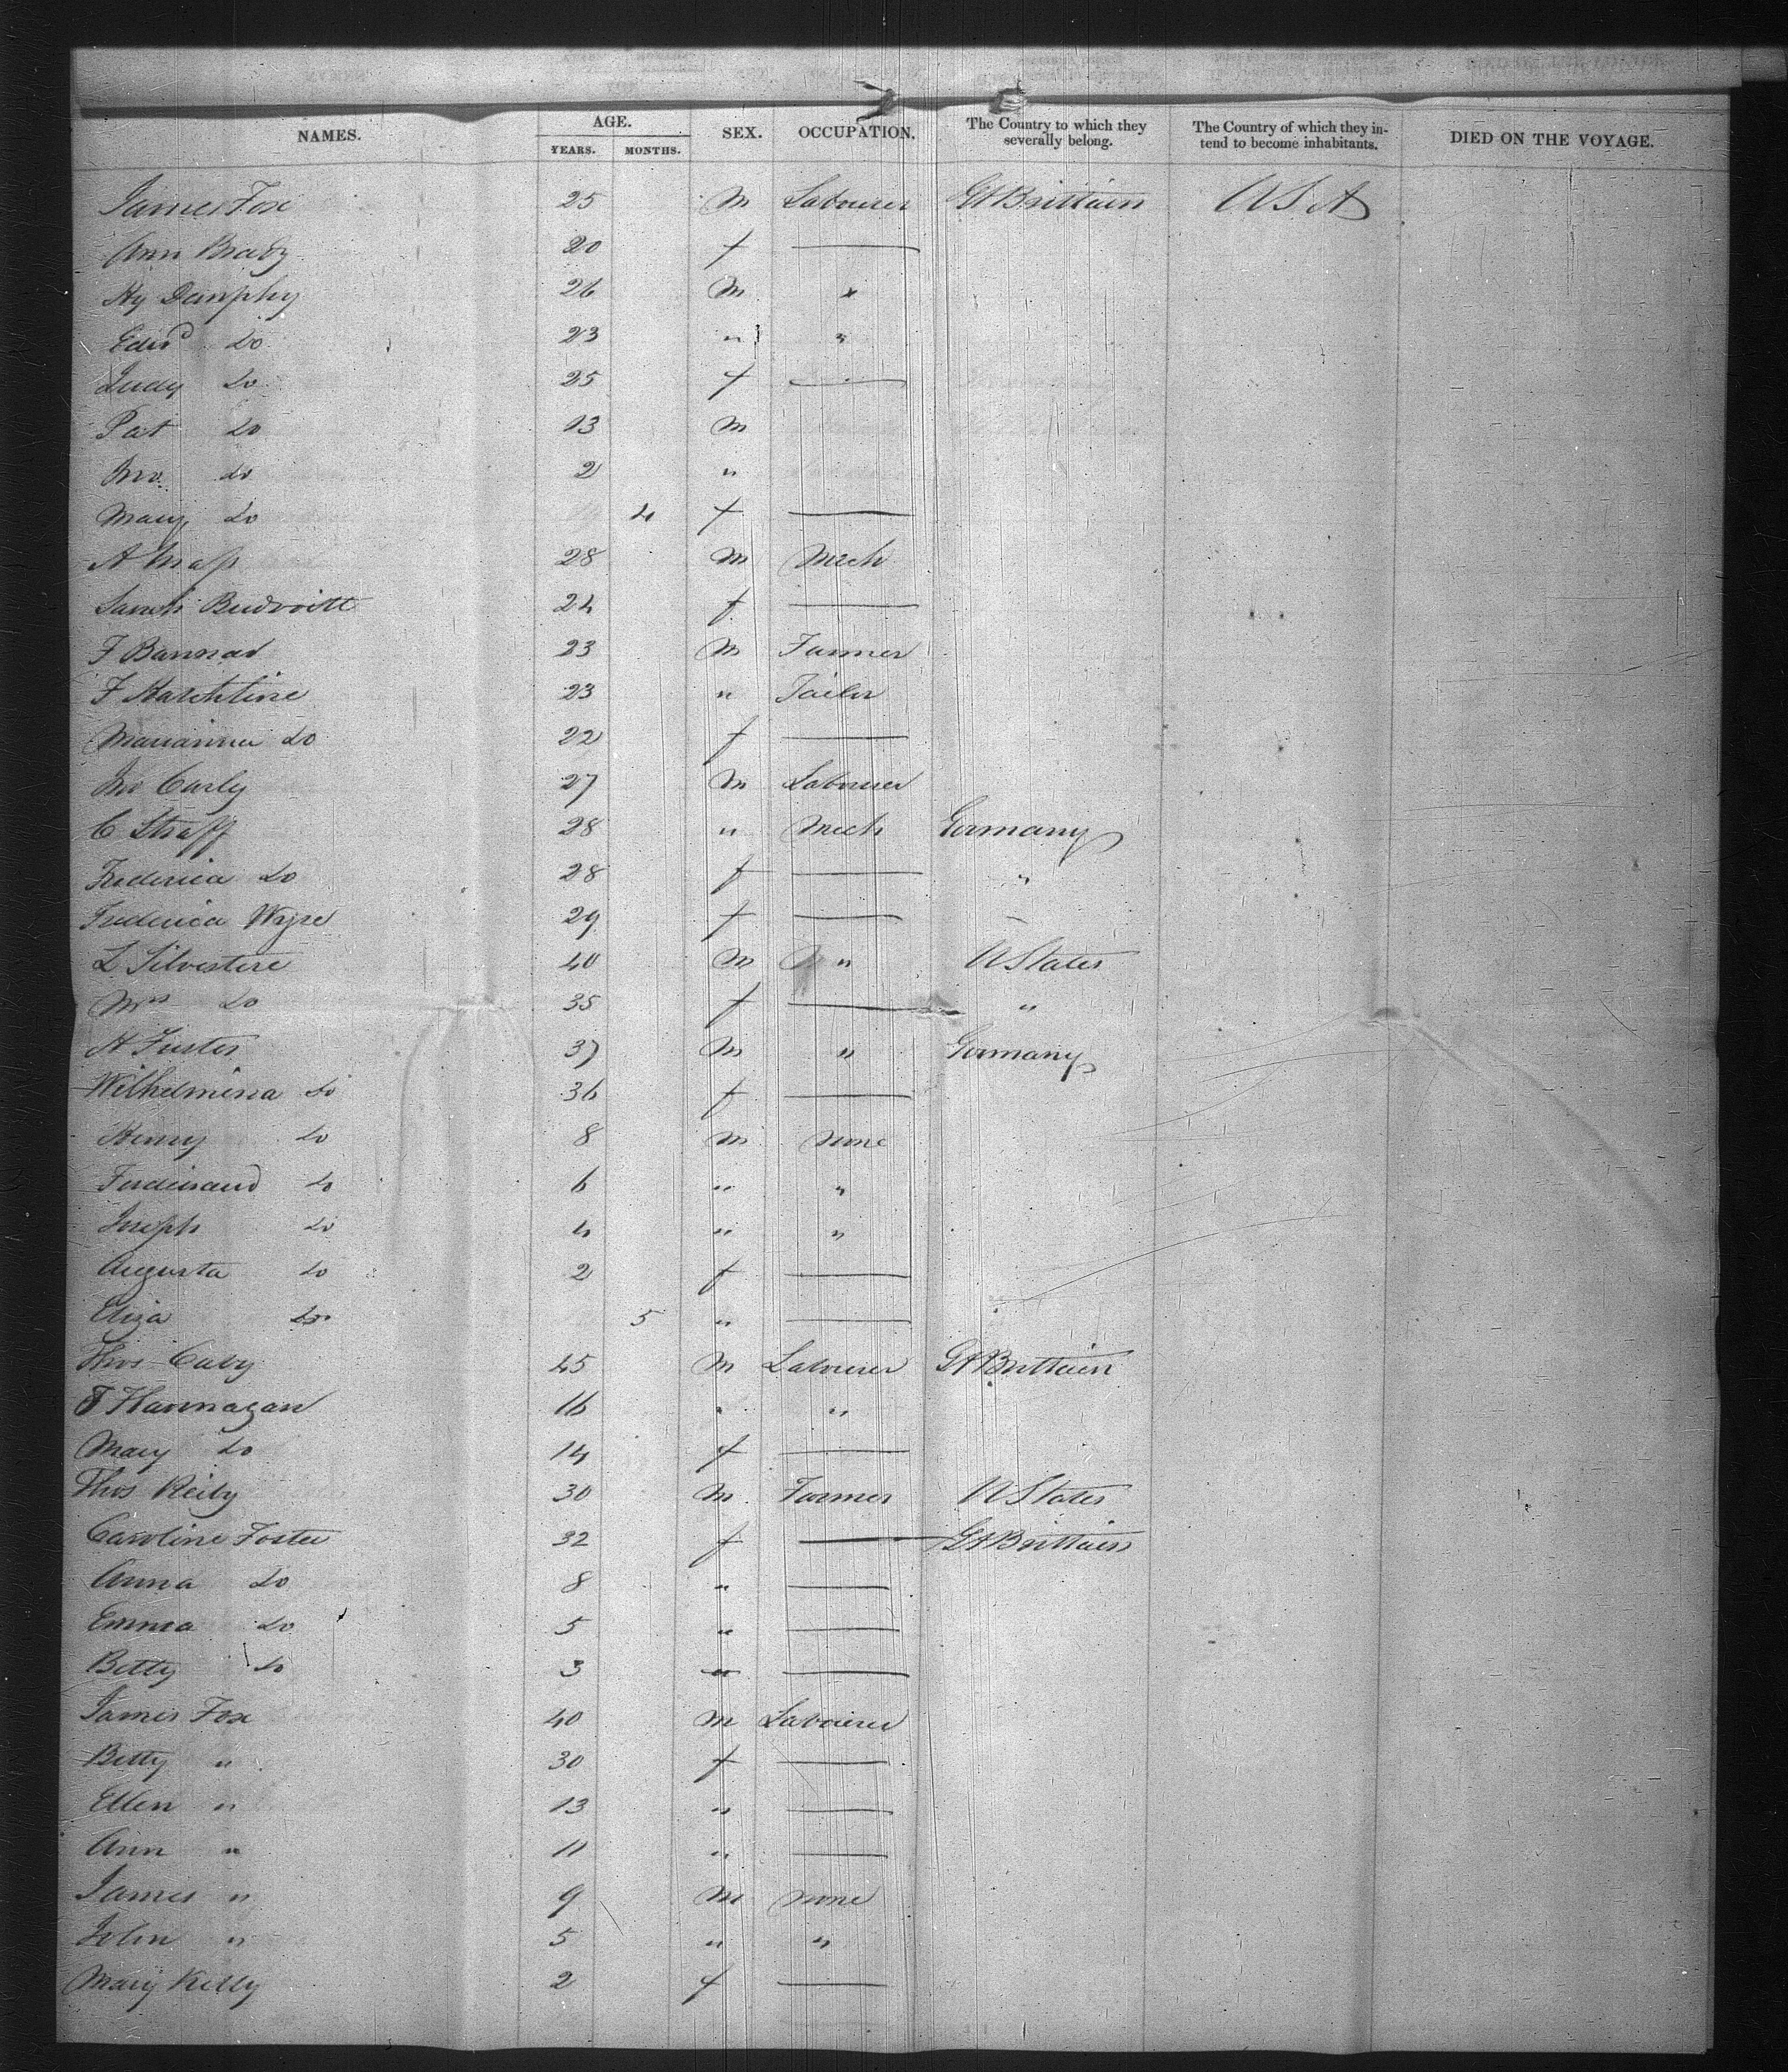 NAMES. AGE. YEARS. MONTHS. SEX. OCCUPATION. The Country to which they severally belong. The Country of which they intend to become inhabitants. DIED ON THE VOYAGE.
James Fox 25 m Labourer Gt Brittain U S A
Ann Brady 20 f —
Hy Dunphy 26 m "
Edwd Do 23 " "
Judy Do 25 f —
Pat Do 13 m
Jno. Do 2 "
Mary Do 4 f —
A 28 m Mech
Sarah 24 f —
F Bannad 23 m Farmer
F Harchtine 23 " Tailor
Marianna Do 22 f —
Jno Carly 27 m Labourer
C Straff 28 " Mech Germany
Frederica Do 28 f — "
Frederica 29 f —
L Silvestere 40 m " U States
Mrs Do 35 f — "
H Fuster 37 m " Germany
Wilhelmina Do 36 f —
Henry Do 8 m none
Ferdinand Do 6 " "
Joseph Do 4 " "
Augusta Do 2 f —
Eliza Do 5 " —
Thos Caby 45 m Labourer Gt Brittain
T Flannagan 16 " "
Mary Do 14 f —
Thos Reily 30 m Farmer U States
Caroline Foster 32 f — Gt Brittain
Anna Do 8 " —
Emma Do 5 " —
Betty Do 3 " —
James Fox 40 m Labourer
Betty " 30 f —
Ellen " 13 " —
Ann " 11 " —
James " 9 m none
John " 5 " "
Mary Kelly 2 f —